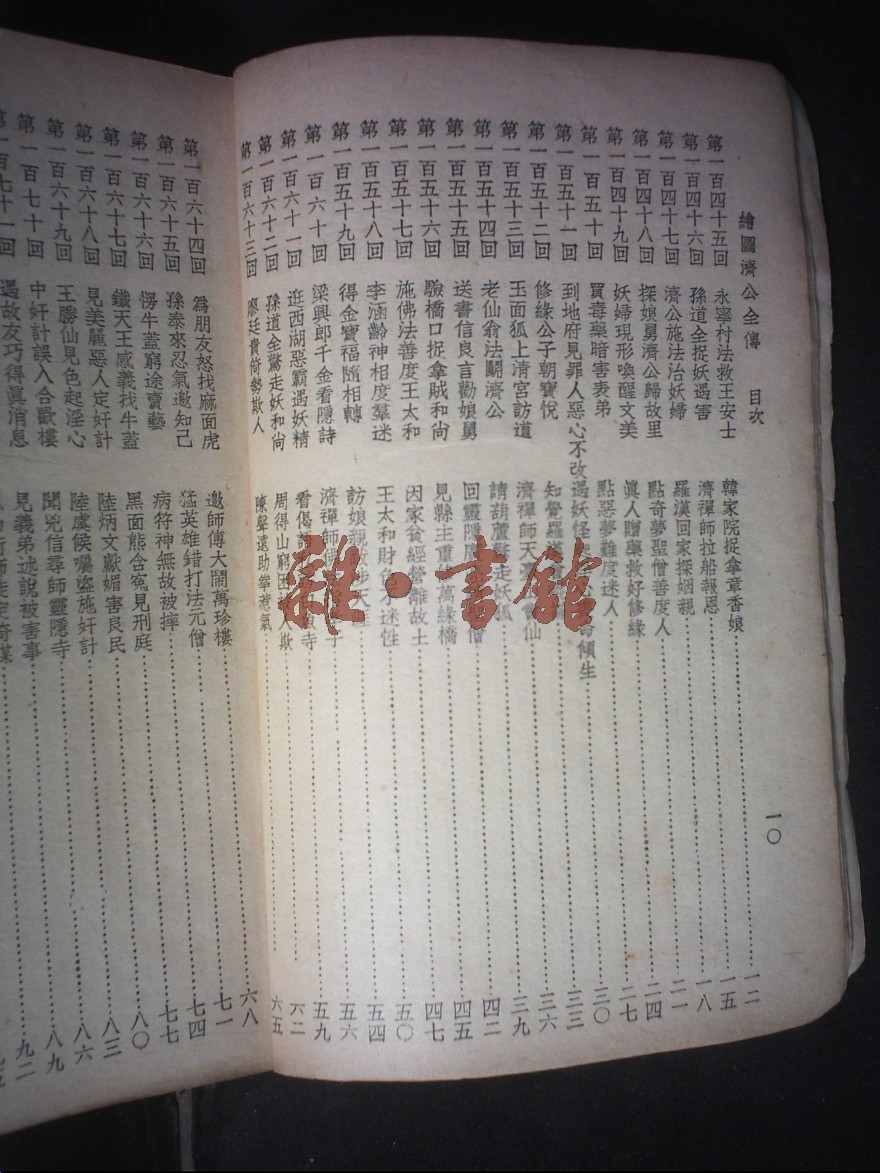 繪圖濟公全傳 目次 一〇
第一百四十五回 永寧村法救王安士 韓家院捉拿章香娘 一二
第一百四十六回 孫道全捉妖遇害 濟禪師拉船報恩 一五
第一百四十七回 濟公施法治妖婦 羅漢回家探姻親 一八
第一百四十八回 探娘舅濟公歸故里 點奇夢聖僧善度人 二一
第一百四十九回 妖婦現形喚醒文美 眞人贈藥救好修緣 二四
第一百五十回 買毒藥暗害表弟 點惡夢難度迷人 二七
第一百五十一回 到地府見罪人惡心不改 遇妖怪 傾生 三〇
第一百五十二回 修緣公子朝寶悅 知覺羅 三三
第一百五十三回 玉面狐上清宮訪道 濟禪師天 仙 三六
第一百五十四回 老仙翁法鬭濟公 請葫蘆 走妖狐 三九
第一百五十五回 送書信良言勸娘舅 回靈隱 僧 四二
第一百五十六回 驗橋口捉拿賊和尚 見縣主重修萬緣橋 四五
第一百五十七回 施佛法善度王太和 因家貧經營離故土 四七
第一百五十八回 李涵齡神相度羣迷 王太和財色不迷性 五〇
第一百五十九回 得金寶福隨相轉 訪娘親跋涉天涯 五四
第一百六十回 梁興郎千金看隱詩 濟禪師 子 五六
第一百六十一回 逛西湖惡霸遇妖精 看偈語 寺 五九
第一百六十二回 孫道全驚走妖和尚 周得山窮困 人欺 六二
第一百六十三回 廖廷貴倚勢欺人 陳聲遠助拳惹氣 六五
第一百六十四回 為朋友怒找麻面虎 邀師傅大鬧萬珍樓 六八
第一百六十五回 孫泰來忍氣邀知己 猛英雄錯打法元僧 七一
第一百六十六回 楞牛蓋窮途賣藝 病符神無故被摔 七四
第一百六十七回 鐵天王感義找牛蓋 黑面熊含寃見刑庭 七七
第一百六十八回 見美麗惡人定奸計 陸炳文獻媚害良民 八〇
第一百六十九回 王勝仙見色起淫心 陸虞候囑盜施奸計 八三
第一百七十回 中奸計誤入合歡樓 聞兇信尋師靈隱寺 八六
第一百七十一回 遇故友巧得眞消息 見義弟述說被害事 八九
九二
雜·書館